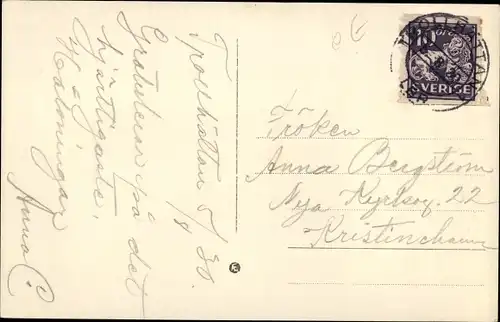 Trollhättan 5/8 30.
Gratulerar på det
hjärtligaste,
Hälsningar
Anna C.
10
SVERIGE
Fröken
Anna Bergström
Nya Kyrkog. 22
Kristinehamn